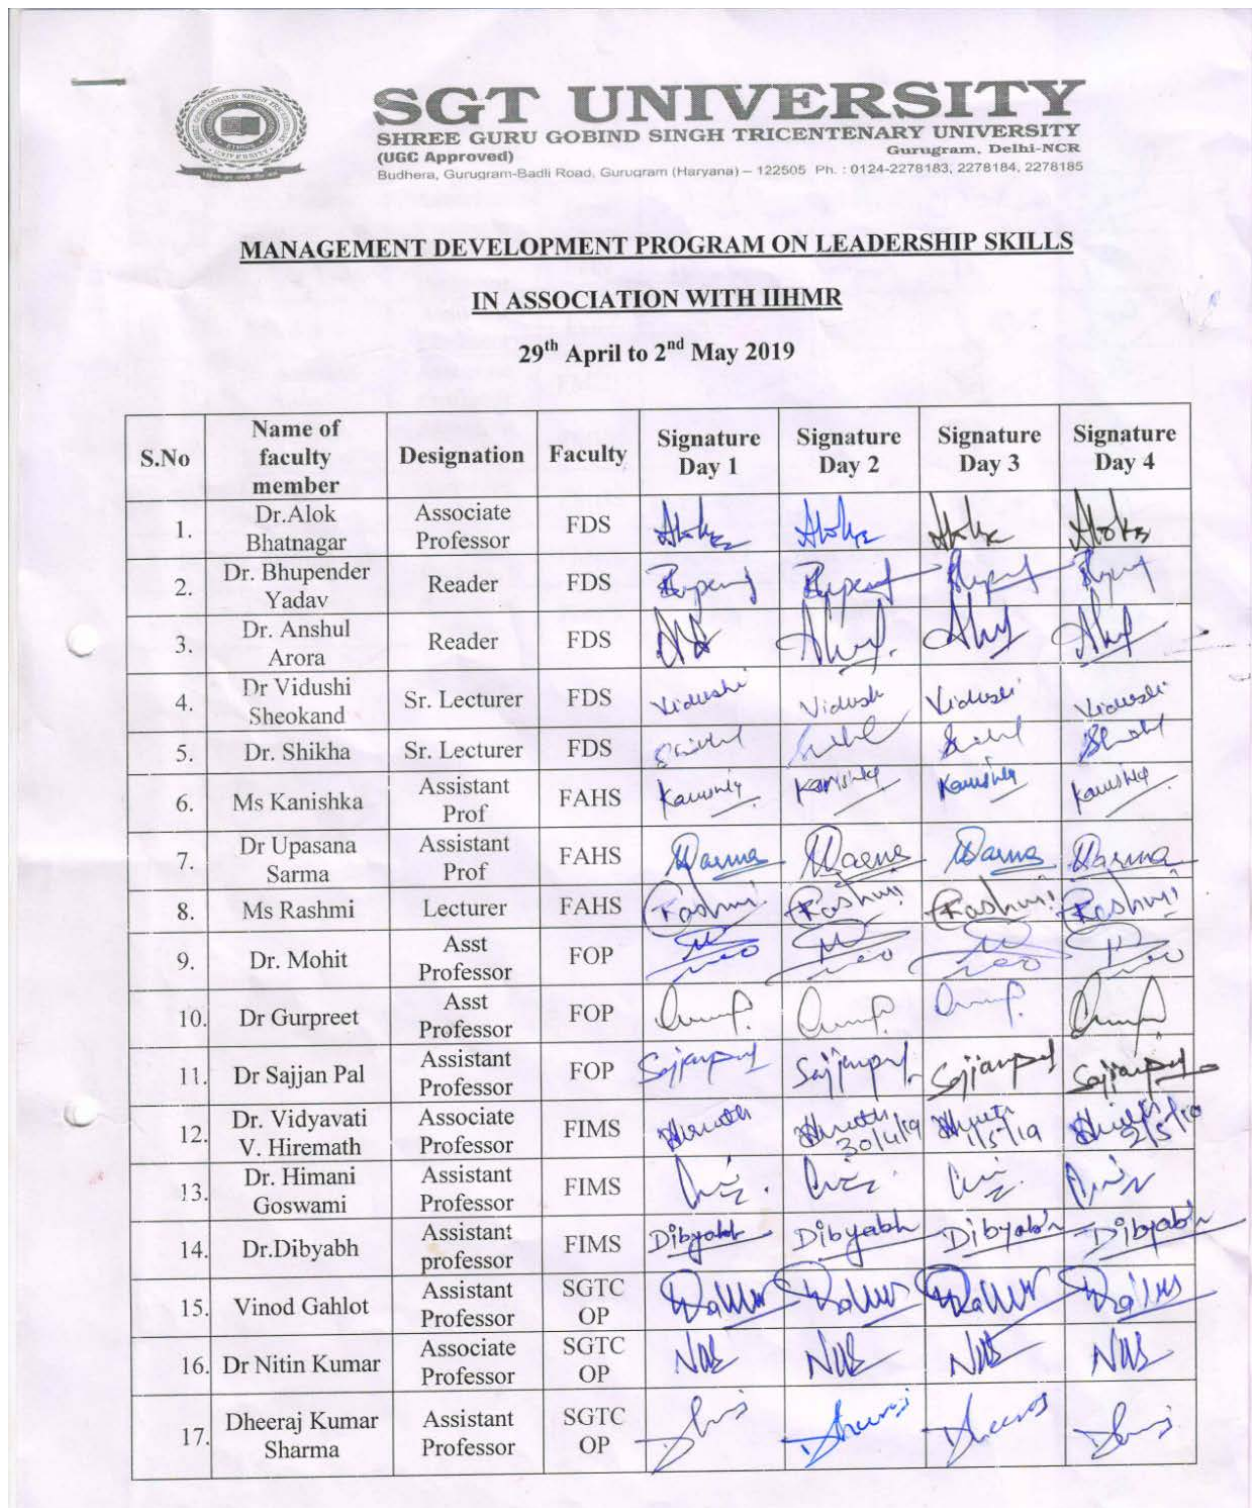 SGT UNIVERSITY
SHREE GURU GOBIND SINGH TRICENTENARY UNIVERSITY
(UGC Approved) Gurugram, Delhi-NCR
Budhera, Gurugram-Badli Road, Gurugram (Haryana) – 122505 Ph. : 0124-2278183, 2278184, 2278185
MANAGEMENT DEVELOPMENT PROGRAM ON LEADERSHIP SKILLS
IN ASSOCIATION WITH IIHMR
29th April to 2nd May 2019
S.No Name of faculty member Designation Faculty Signature Day 1 Signature Day 2 Signature Day 3 Signature Day 4
1. Dr.Alok Bhatnagar Associate Professor FDS
2. Dr. Bhupender Yadav Reader FDS
3. Dr. Anshul Arora Reader FDS
4. Dr Vidushi Sheokand Sr. Lecturer FDS Vidushi Vidushi Vidushi Vidushi
5. Dr. Shikha Sr. Lecturer FDS
6. Ms Kanishka Assistant Prof FAHS
7. Dr Upasana Sarma Assistant Prof FAHS
8. Ms Rashmi Lecturer FAHS Rashmi Rashmi Rashmi Rashmi
9. Dr. Mohit Asst Professor FOP
10. Dr Gurpreet Asst Professor FOP
11. Dr Sajjan Pal Assistant Professor FOP Sajjanpal Sajjanpal Sajjanpal Sajjanpal
12. Dr. Vidyavati V. Hiremath Associate Professor FIMS 30/4/19 1/5/19 2/5/19
13. Dr. Himani Goswami Assistant Professor FIMS
14. Dr.Dibyabh Assistant professor FIMS Dibyabh Dibyabh Dibyabh Dibyabh
15. Vinod Gahlot Assistant Professor SGTC OP
16. Dr Nitin Kumar Associate Professor SGTC OP
17. Dheeraj Kumar Sharma Assistant Professor SGTC OP